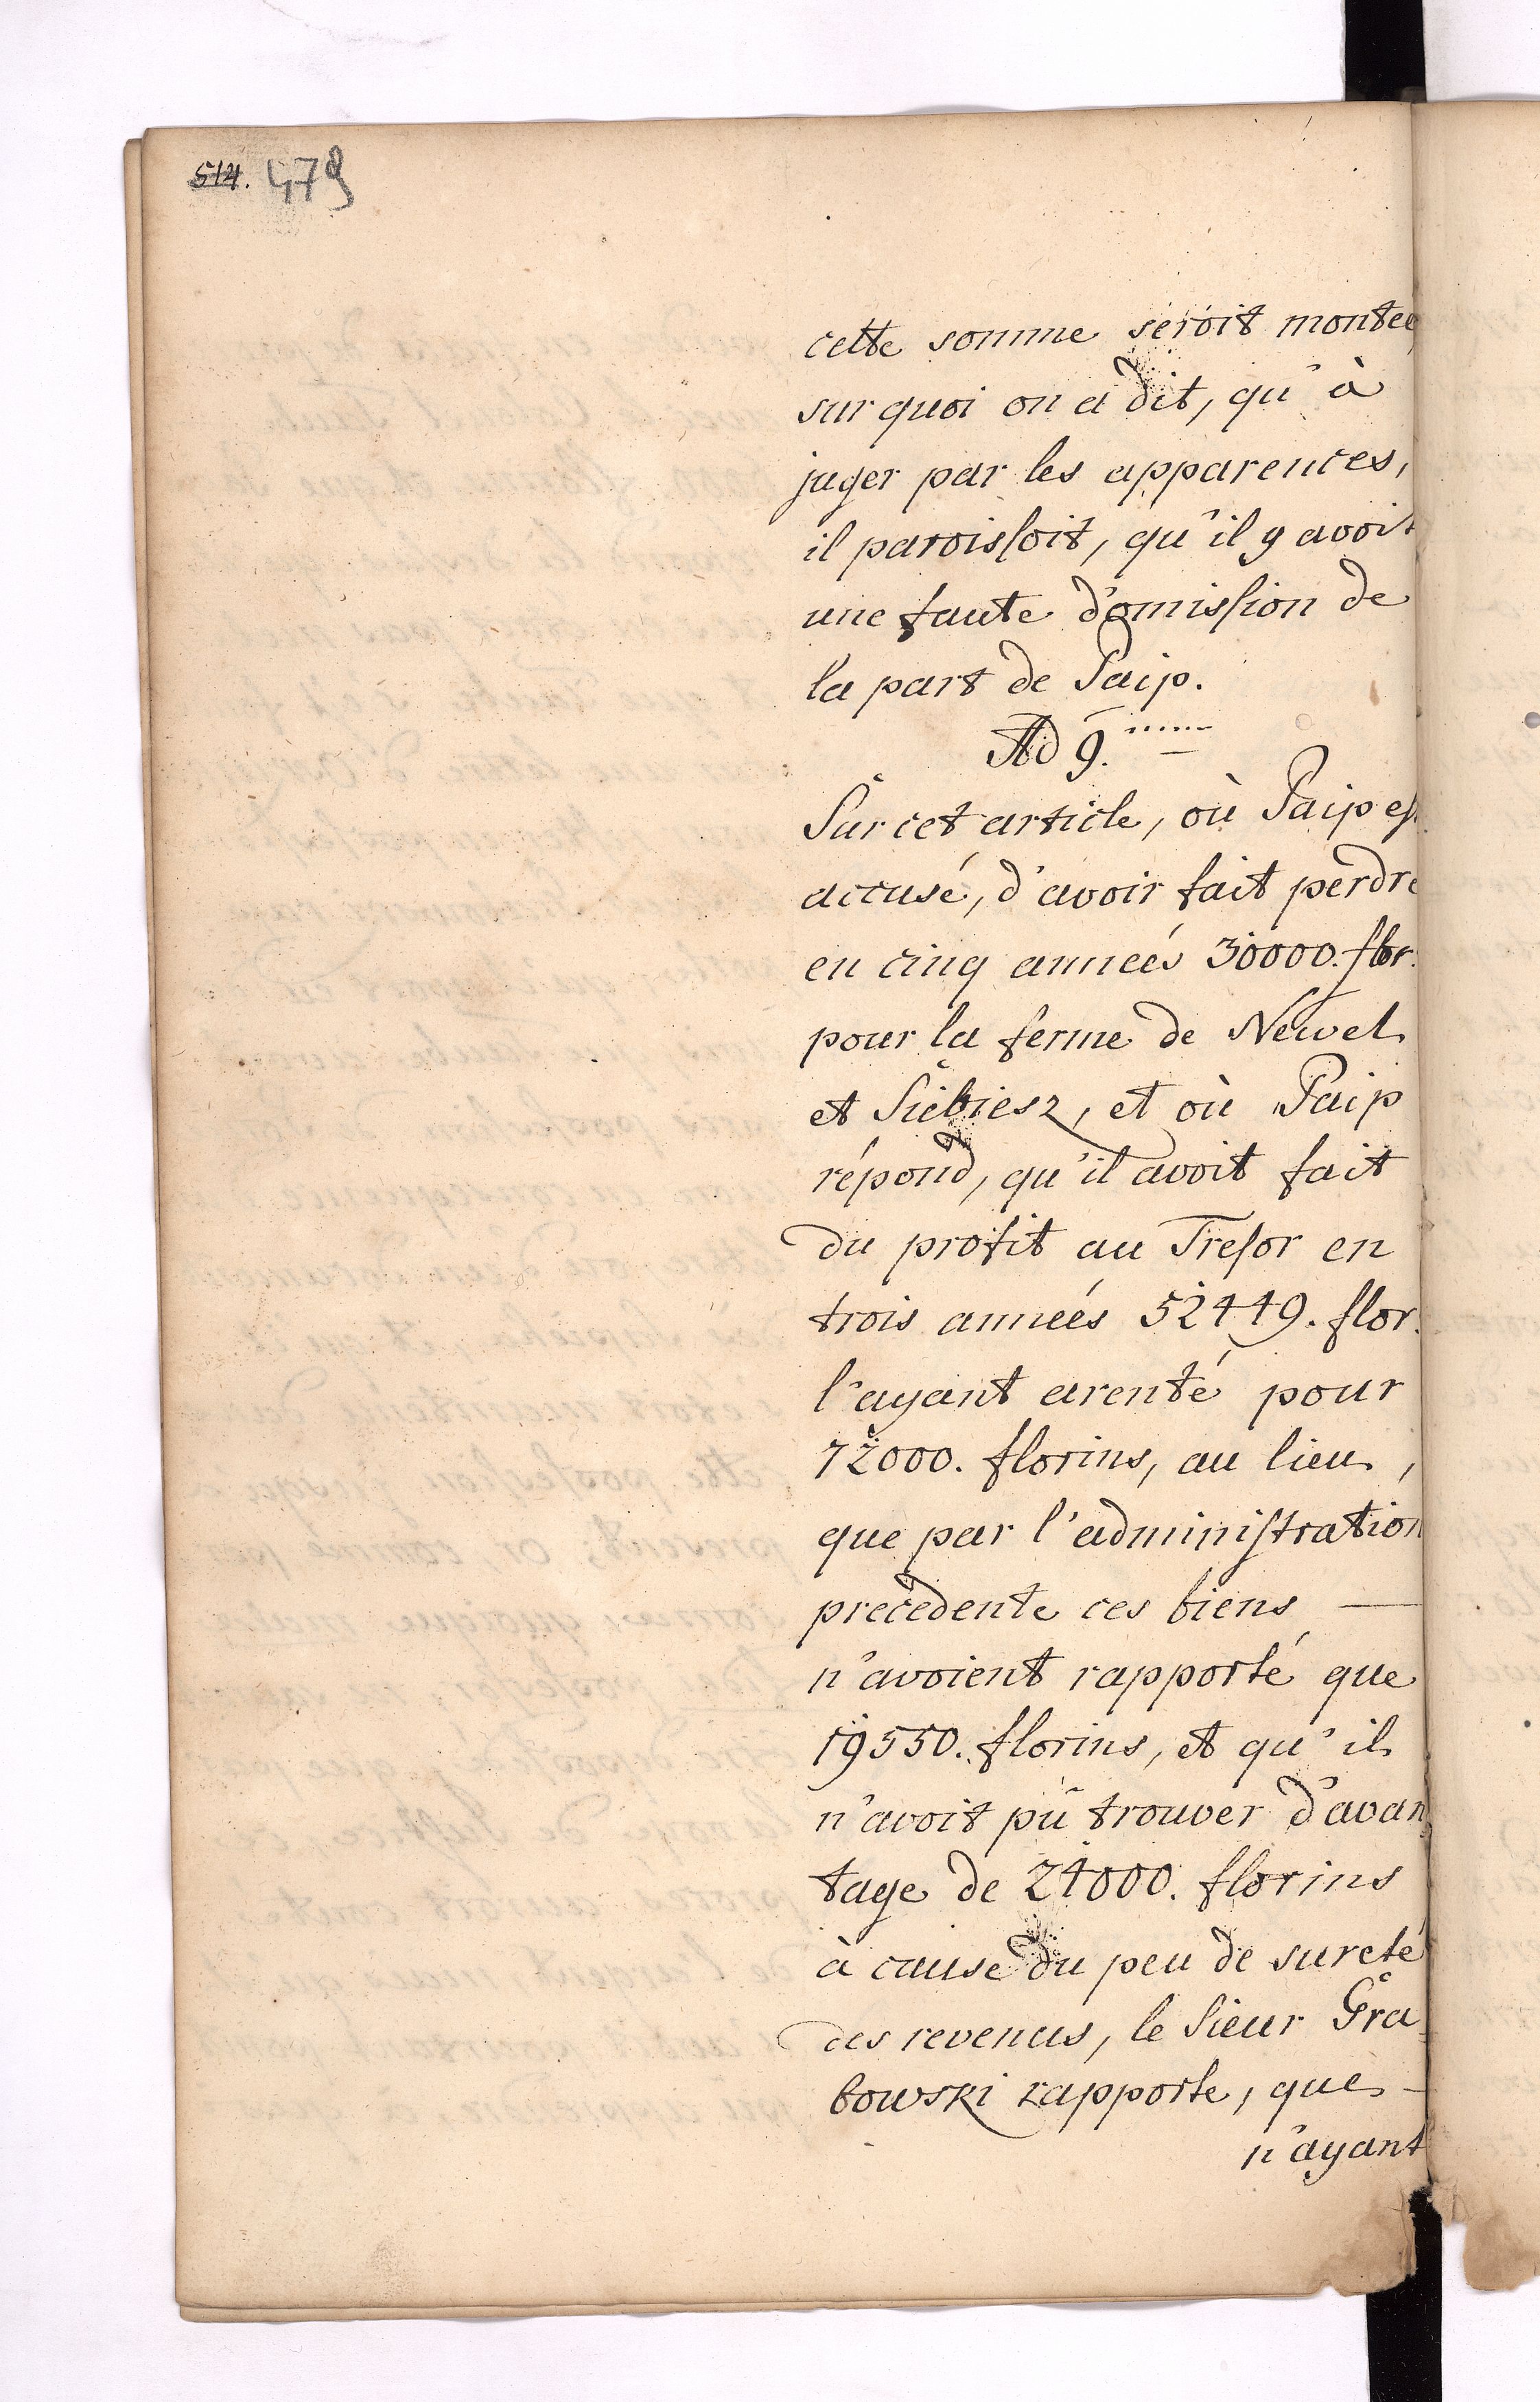 514. 479
cette somme seroit monteé
sur quoi on a dit, qu'à
juger par les apparences,
il paroissoit, qu'il y avoit
une faute d'omission de
la part de Paip.
Ad 9.
Sur cet article, où Paip est
accusé, d'avoir fait perdre
en cinq anneés 30000. flor.
pour la ferme de Newel
et Siebiesz, et où Paip
répond, qu'il avoit fait
du profit au Tresor en
trois anneés 52449. flor.
l'ayant arenté pour
72000. florins, au lieu,
que par l'administration
precedente ces biens —
n'avoient rapporté que
19550. florins, et qu'il
n'avoit pû trouver d'avan
tage de 24000. florins
à cause du peu de sureté
des revenus, le Sieur Gra
bowski rapporte, que -
n'ayant